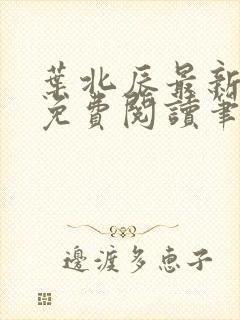 葉北辰最新
免費閱讀筆
邊渡多恵子